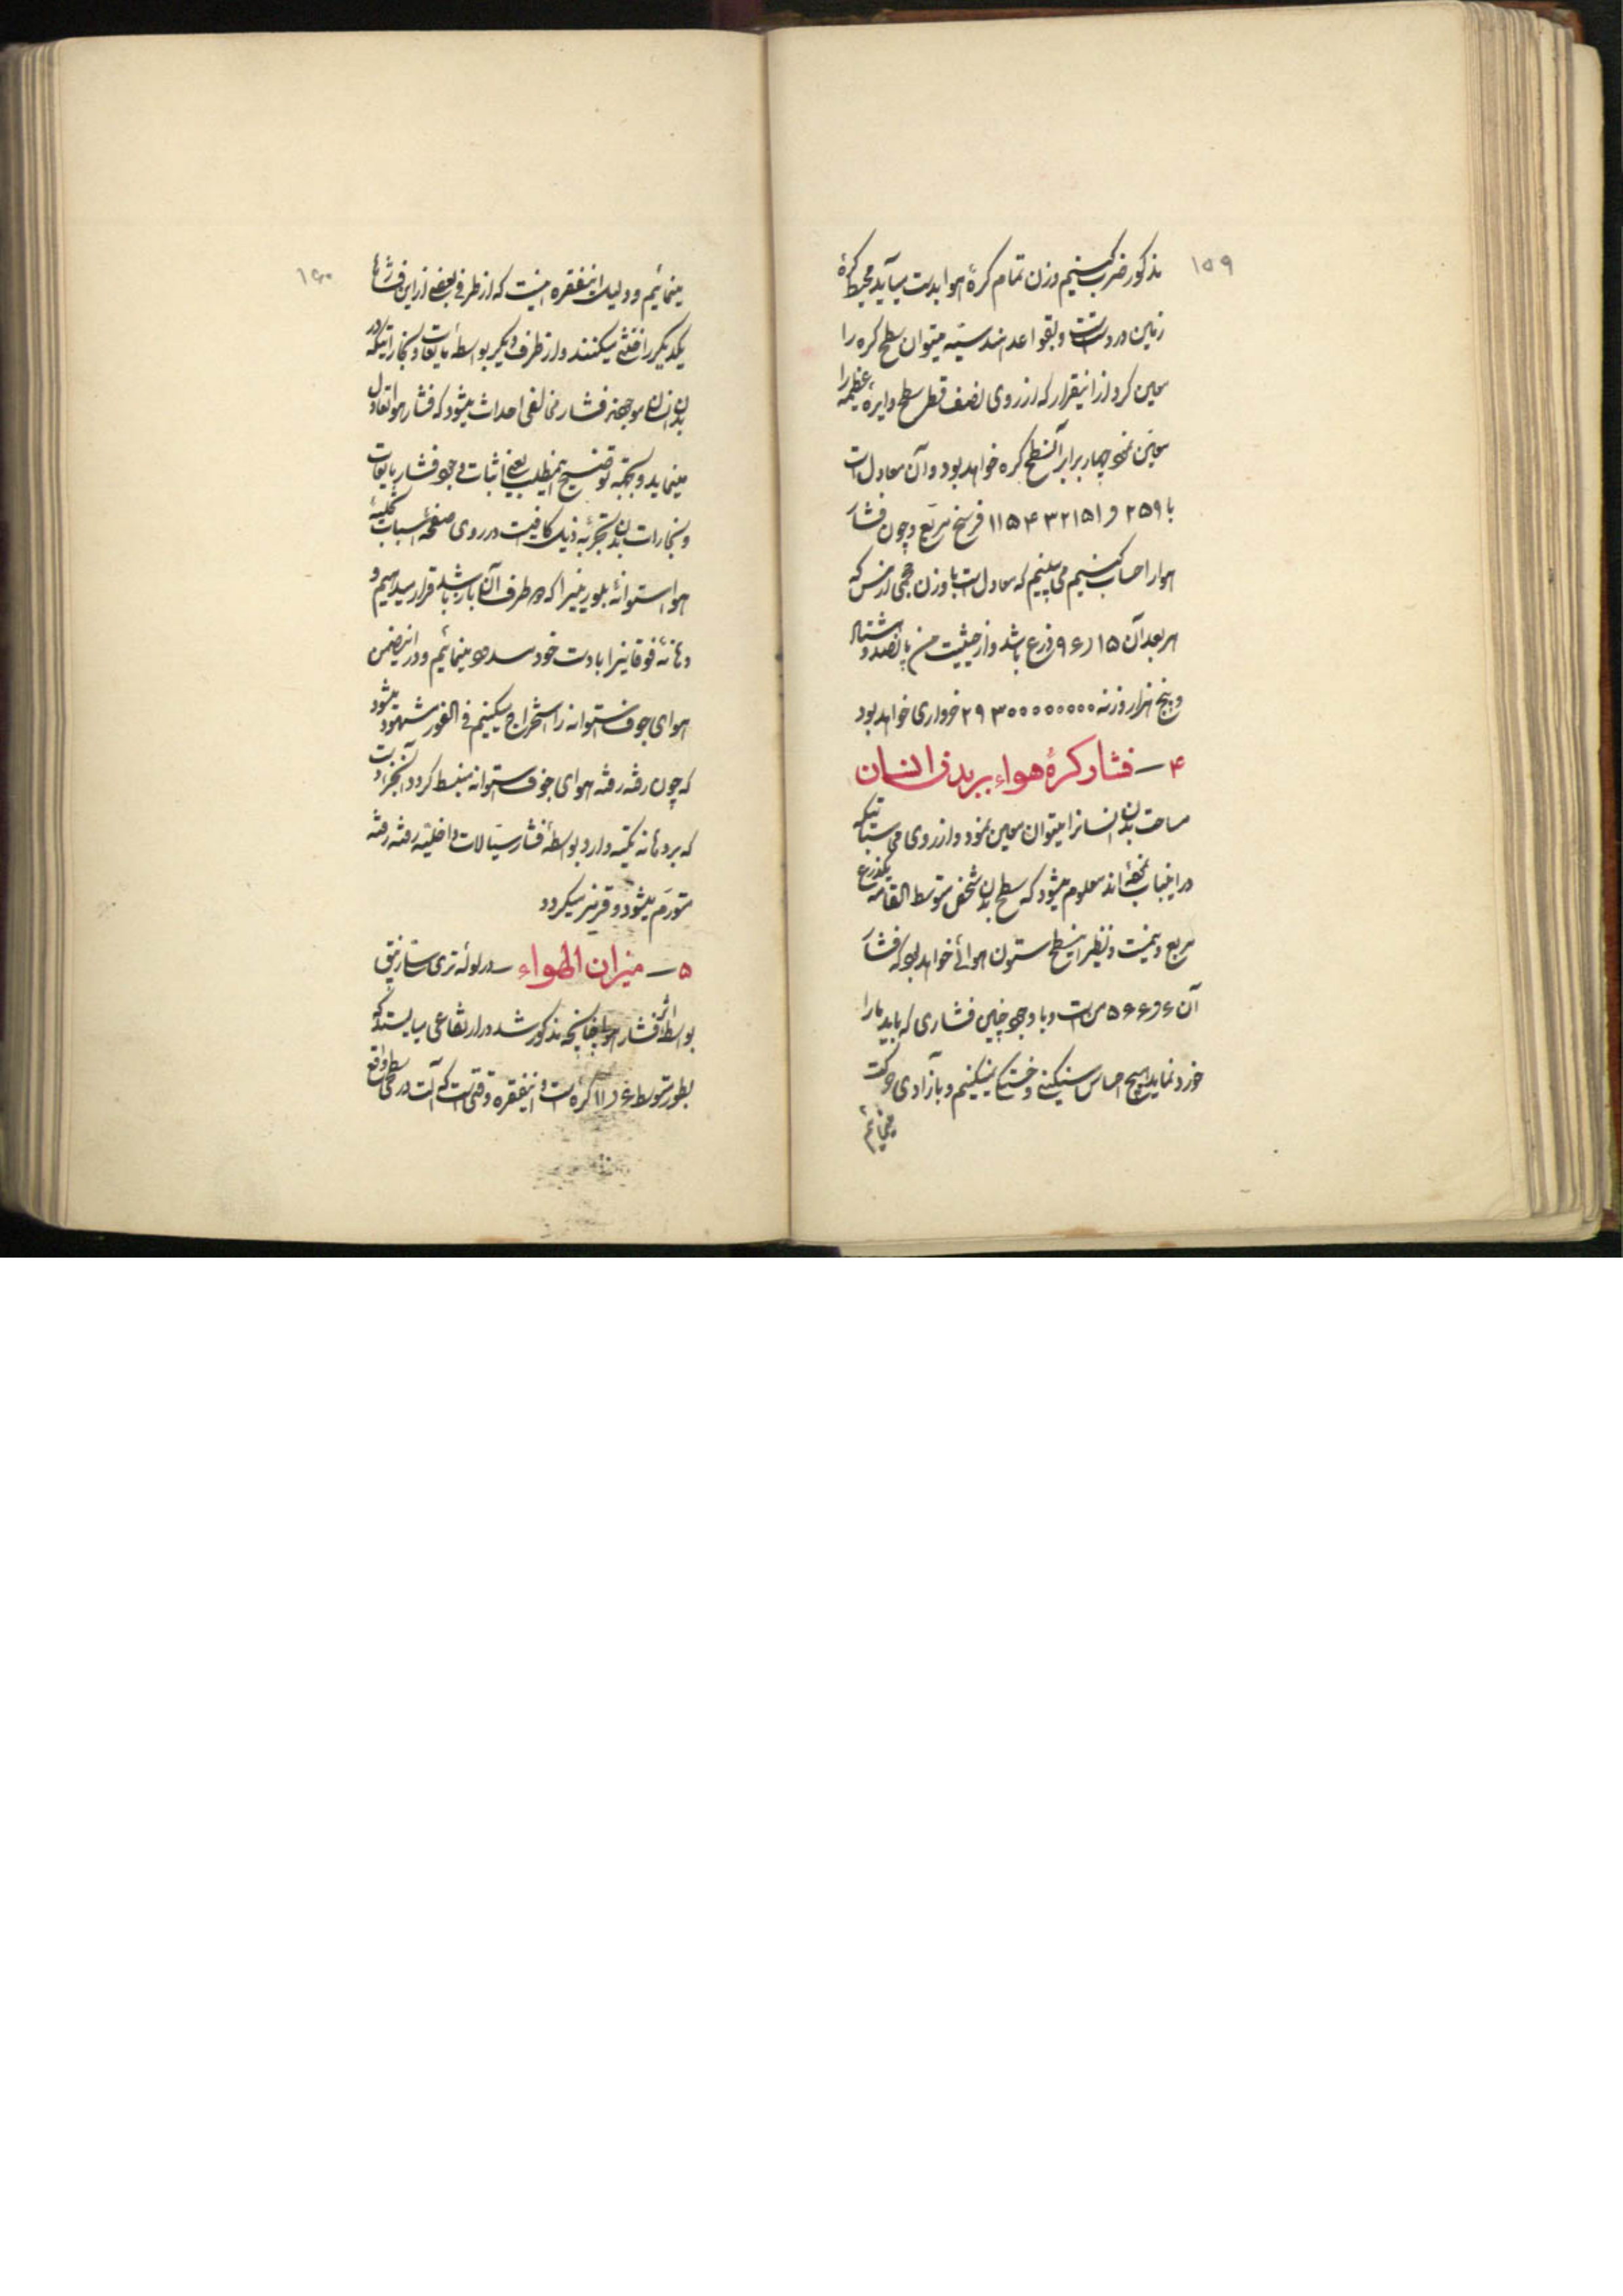 ۱۵۹
مذکور ضرب کنیم وزن تمام کرهٔ هوا بدست میآید محیط کرهٔ
زمین در دست است و بقواعد هندسیّه میتوان سطح کره را
معین کرد از اینقرار که از روی نصف قطر سطح دایرهٔ عظیمه را
معیّن نموده چهار برابر آن سطح کره خواهد بود و آن معادل است
با ۲۵۹ و ۱۱۵۴۳۲۱۵۱ فرسخ مربّع و چون فشار
هوا را حساب کنیم می بینیم که معادل است با وزن حجمی از مس که
هر بعد آن ۹۶٫۱۵ ذرع باشد و از حیثیت من پانصد و هشتاد
و پنج هزار وزنه ۲۹۳۰۰۰۰۰۰۰۰۰ خرواری خواهد بود
۴ — فشار کرهٔ هواء بر بدن انسان
مساحت بدن انسانرا میتوان معین نمود و از روی
در اینباب نموده‌اند معلوم میشود که سطح بدن شخص متوسط القامه یکذرع
مربع و نیمست و نظیر این سطح ستون هوائی خواهد بود که فشار
آن ۶ و ۵۶۶ من است و با وجود چنین فشاری که باید ما را
خرد نماید هیچ احساس سنگینی و خستگی نمیکنیم و بآزادی حرکت
مینمائیم
۱۶۰
مینمائیم و دلیل اینفقره اینست که از طرفی بعضی از این فشارها
یکدیگر را خنثی میکنند و از طرف دیگر بواسطهٔ مایعات و بخاراتیکه در
بدن انسان موجودند فشار مخالفی احداث میشود که فشار هوا را تعادل
مینماید و بجهة توضیح اینمطلب یعنی اثبات وجود فشار مایعات
و بخارات بدن تجربهٔ ذیل کافیست در روی صفحهٔ اسباب تخلیهٔ
هوا استوانهٔ بلورینیرا که دو طرف آن باز باشد قرار میدهیم و
دهانهٔ فوقانیرا با دست خود مسدود مینمائیم و در اینضمن
هوای جوف استوانه را استخراج میکنیم فی الفور مشهود میشود
که چون رفته رفته هوای جوف استوانه منبسط گردد آن جزء از دست
که بر دهانه تکیه دارد بواسطهٔ فشار سیّالات داخلیّه رفته رفته
متورّم میشود و قرمز میگردد
۵ — میزان الهواء — در لولهٔ تری سلی زیبق
بواسطهٔ اثر فشار هوا چنانچه مذکور شد در ارتفاعی میایستد که
بطور متوسط ۶ و ۱۱ گره است و اینفقره وقتی است که آلت در سطحی واقع